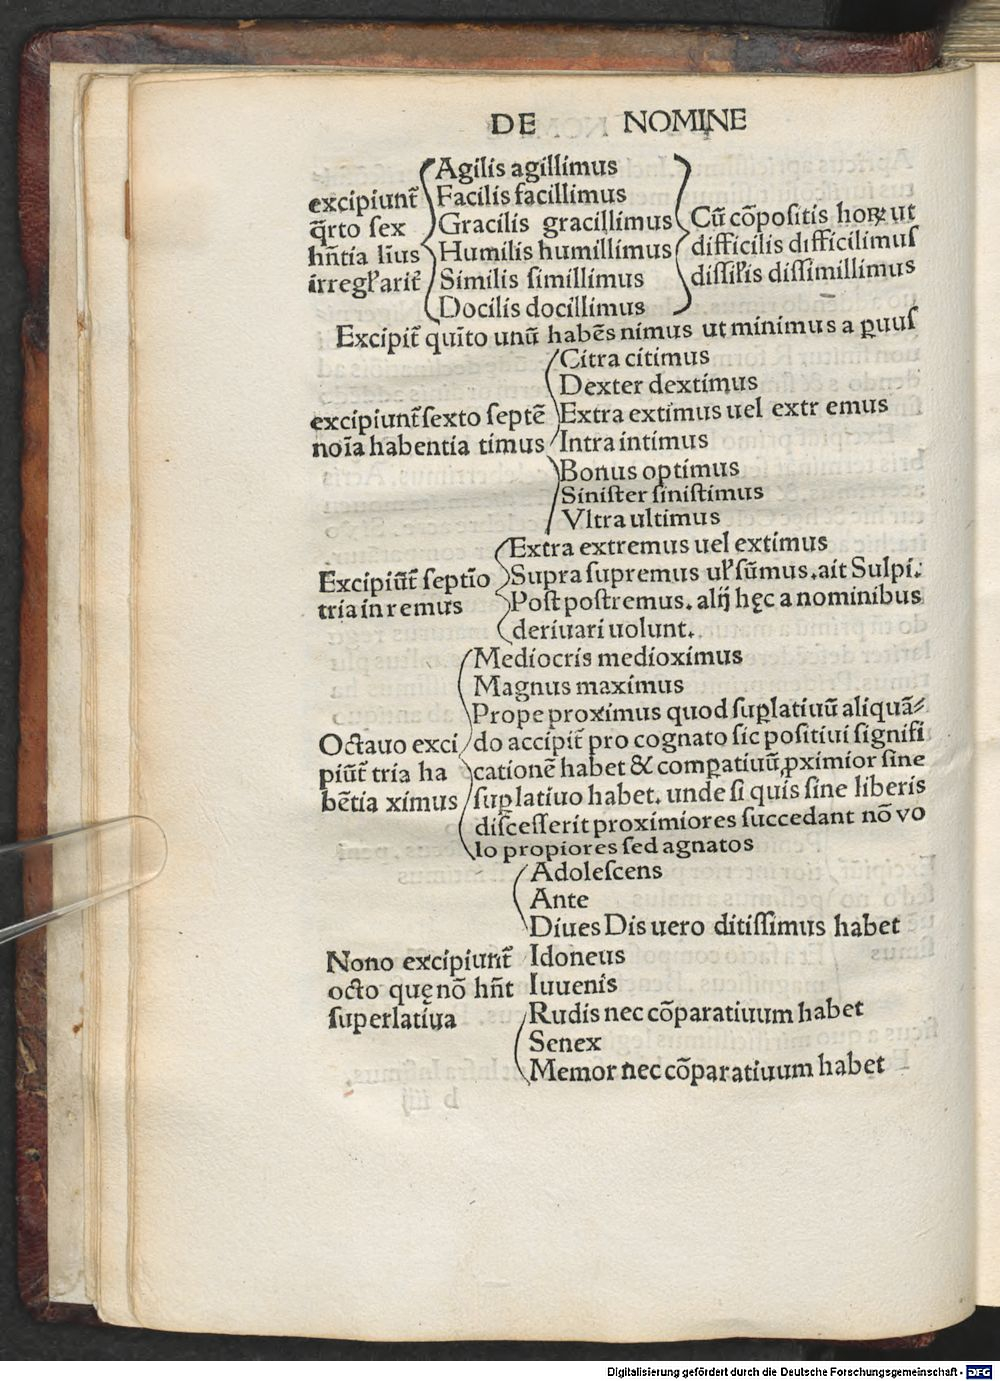 DE NOMINE
excipiunt̃
q̃rto sex
hñtia lius
irregl'arit̃
Agilis agillimus
Facilis facillimus
Gracilis gracillimus
Humilis humillimus
Similis simillimus
Docilis docillimus
Cũ cõpositis hoꝝ ut
difficilis difficilimus
dissil'is dissimillimus
Excipit̃ quĩto unũ habẽs nimus ut minimus a ꝑuus
excipiunt̃ sexto septẽ
noĩa habentia timus
Citra citimus
Dexter dextimus
Extra extimus uel extr emus
Intra intimus
Bonus optimus
Sinister sinistimus
Vltra ultimus
Excipiũt̃ septĩo
tria in remus
Extra extremus uel extimus
Supra supremus ul' sũmus. ait Sulpi.
Post postremus. alij hęc a nominibus
deriuari uolunt.
Octauo exci
piũt̃ tria ha
bẽtia ximus
Mediocris medioximus
Magnus maximus
Prope proximus quod suꝑlatiuũ aliquã⸗
do accipit̃ pro cognato sic positiui signifi
cationẽ habet & comꝑatiuũ ꝓximior sine
suꝑlatiuo habet. unde si quis sine liberis
discesserit proximiores succedant nõ vo
lo propiores sed agnatos
Nono excipiunt̃
octo quę nõ hñt
superlatiua
Adolescens
Ante
Diues Dis uero ditissimus habet
Idoneus
Iuuenis
Rudis nec cõparatiuum habet
Senex
Memor nec cõparatiuum habet
Digitalisierung gefördert durch die Deutsche Forschungsgemeinschaft - DFG